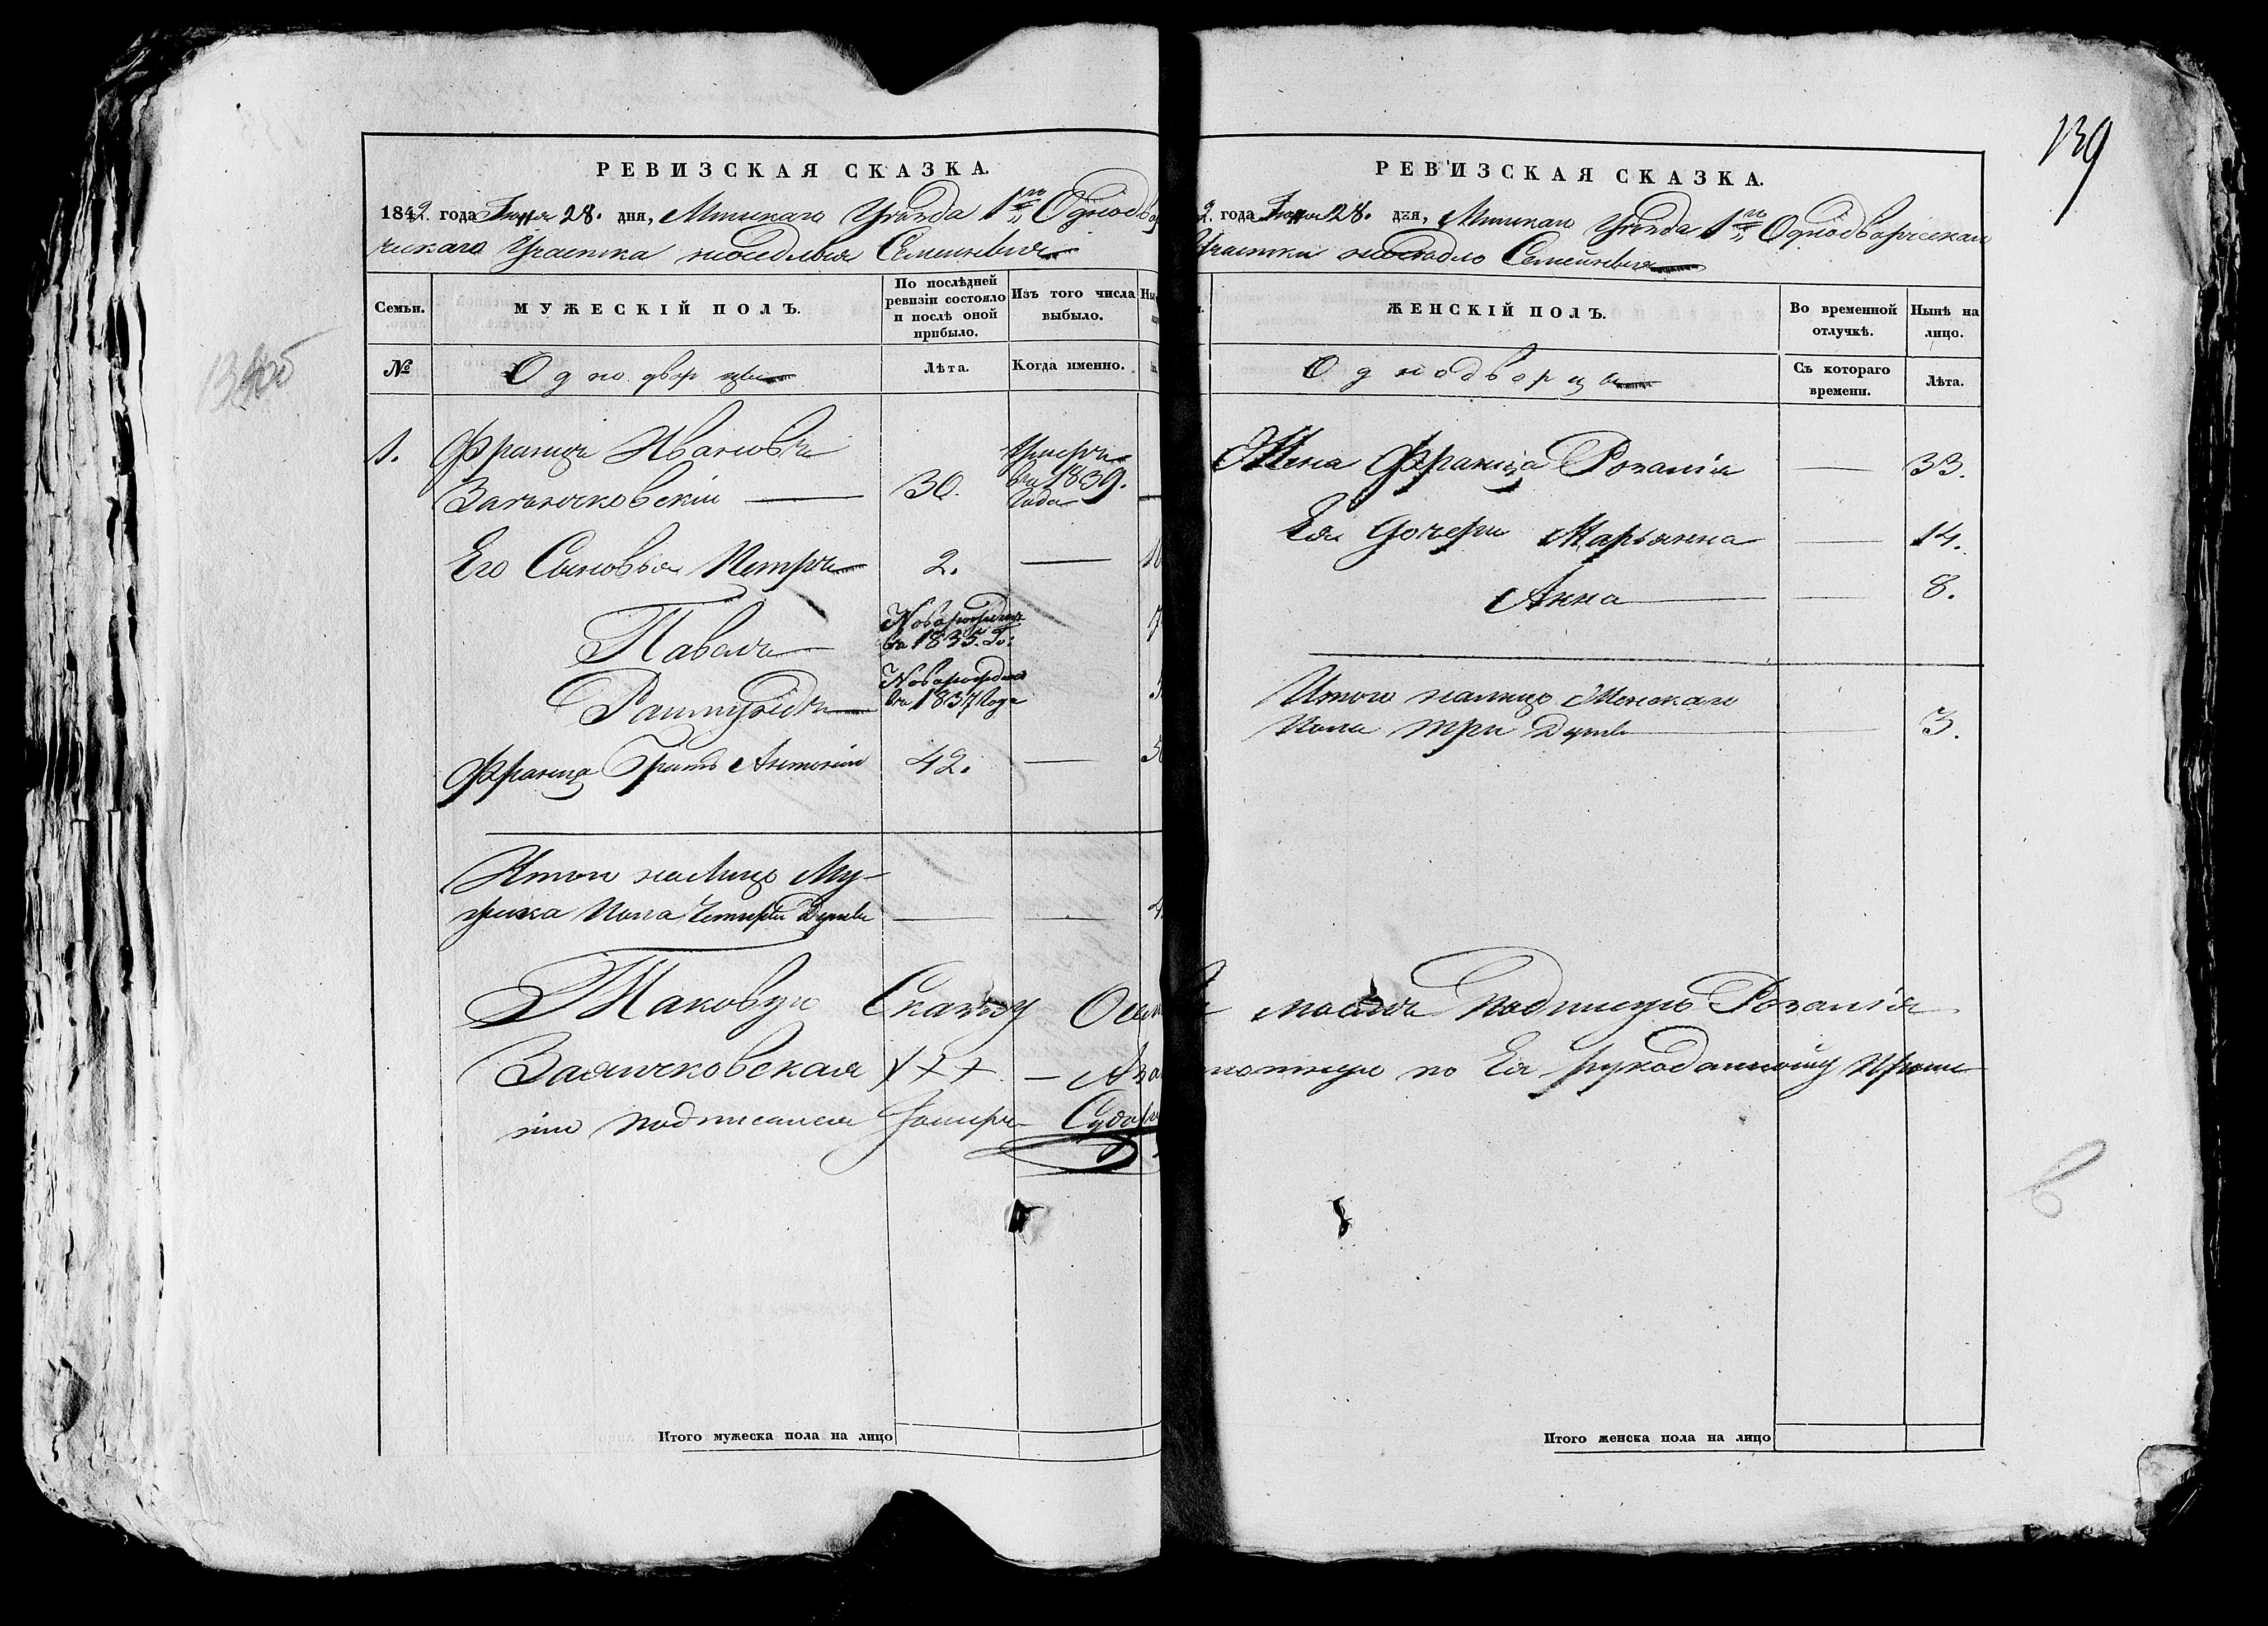 139
РЕВИЗСКАЯ СКАЗКА.
1842. года 28. дня, Минскаго Уѣзда 1го Однодвор
ческаго Участка Семенневичъ
Семьи.
МУЖЕСКІЙ ПОЛЪ.
По послѣдней ревизіи состояло и послѣ оной прибыло.
Изъ того числа выбыло.
№
Однодворцы
Лѣта.
Когда именно.
1. Францъ Ивановъ Умеръ
30. въ 1839. года
Его Сыновья Петръ 2.
Павелъ Новорожденъ въ 1835. Го:
Новорожденъ въ 1837 года
Франца Братъ Антоній 42.
Итого на лицо Му-
жеска пола четыре души
Таковую Сказку
Заянчковская +++
подписался
Итого мужеска пола на лицо
РЕВИЗСКАЯ СКАЗКА.
2. года 28. дня, Минскаго Уѣзда 1го Однодворческаго
Участка
ЖЕНСКІЙ ПОЛЪ.
Во временной отлучкѣ.
Нынѣ на лицо.
Однодворцы
Съ котораго времени.
Лѣта.
Жена Франца Розалія 33.
Ея дочери Марьянна 14.
Анна 8.
Итого налицо Женскаго
Пола три души 3.
Розалія
по Ея рукоданному
Итого женска пола на лицо